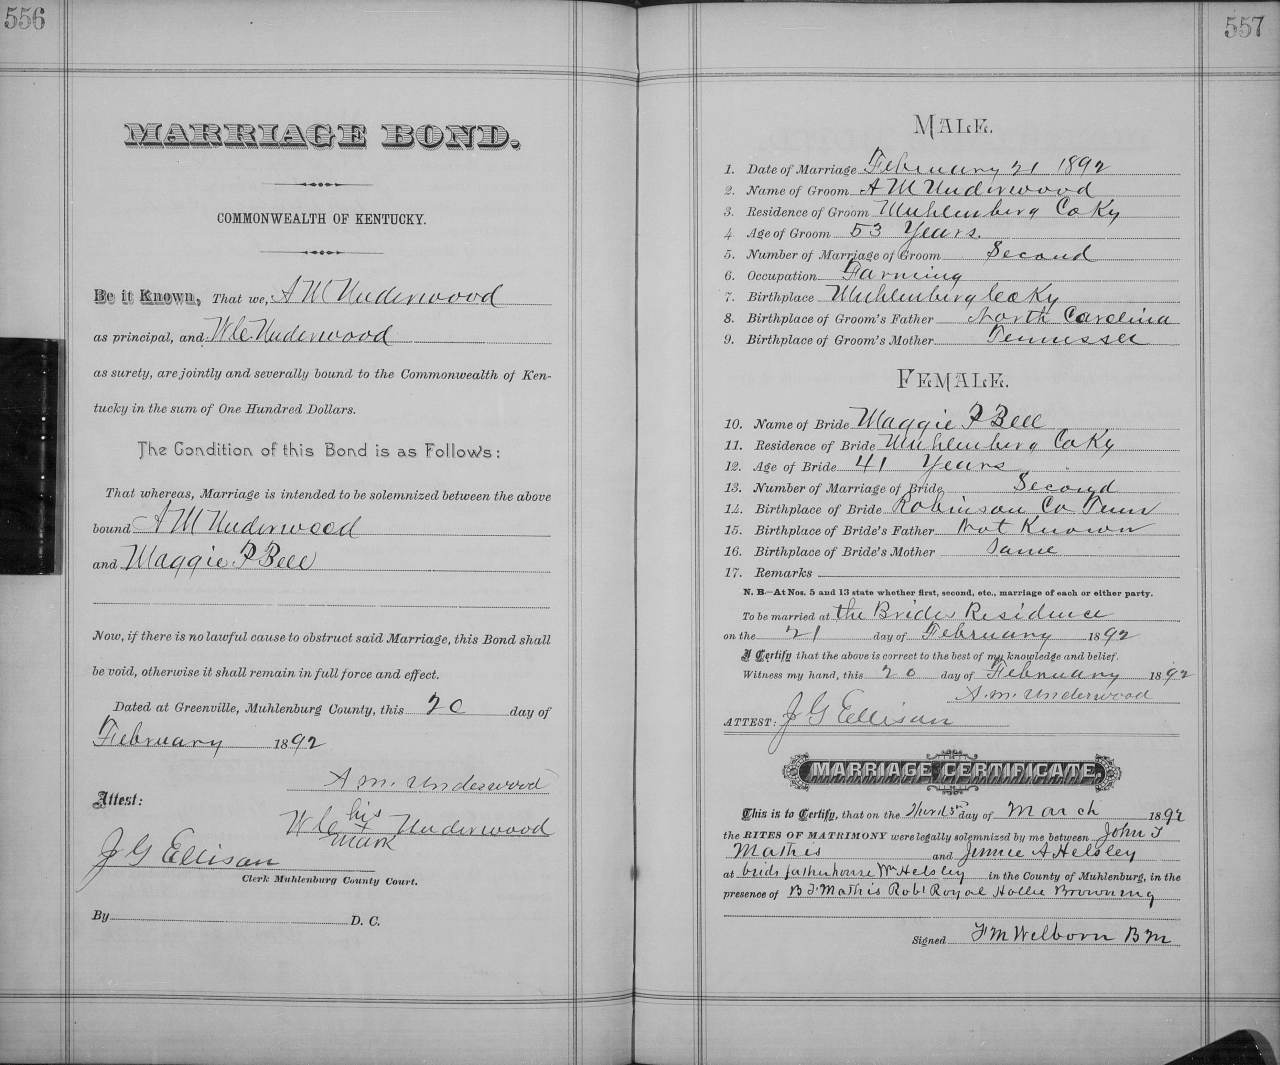 556
MARRIAGE BOND.
COMMONWEALTH OF KENTUCKY.
Be it Known, That we, A M Underwood
as principal, and W C Underwood
as surety, are jointly and severally bound to the Commonwealth of Ken-
tucky in the sum of One Hundred Dollars.
The Condition of this Bond is as Follows:
That whereas, Marriage is intended to be solemnized between the above
bound A M Underwood
and Maggie P Bell
Now, if there is no lawful cause to obstruct said Marriage, this Bond shall
be void, otherwise it shall remain in full force and effect.
Dated at Greenville, Muhlenburg County, this 20 day of
February 1892
A. M. Underwood
Attest:
W C his mark Underwood
J G Ellison
Clerk Muhlenburg County Court.
By D. C.
557
MALE.
1. Date of Marriage February 21 1892
2. Name of Groom A M Underwood
3. Residence of Groom Muhlenberg Co Ky
4. Age of Groom 53 Years.
5. Number of Marriage of Groom Second
6. Occupation Farming
7. Birthplace Muhlenberg Co Ky
8. Birthplace of Groom's Father North Carolina
9. Birthplace of Groom's Mother Tennessee
FEMALE.
10. Name of Bride Maggie P Bell
11. Residence of Bride Muhlenberg Co Ky
12. Age of Bride 41 Years
13. Number of Marriage of Bride Second
14. Birthplace of Bride Robinson Co Tenn
15. Birthplace of Bride's Father Not Known
16. Birthplace of Bride's Mother Same
17. Remarks
N. B.—At Nos. 5 and 13 state whether first, second, etc., marriage of each or either party.
To be married at the Brides Residence
on the 21 day of February 1892
I Certify that the above is correct to the best of my knowledge and belief.
Witness my hand, this 20 day of February 1892
A. M. Underwood
ATTEST: J G Ellison
MARRIAGE CERTIFICATE.
This is to Certify, that on the day of March 1892
the RITES OF MATRIMONY were legally solemnized by me between John T
Mathis and Jennie A Helsley
at brids father house Wm Helsley in the County of Muhlenburg, in the
presence of B T Mathis Robt Royal Hollie Browning
Signed F M Welborn B M